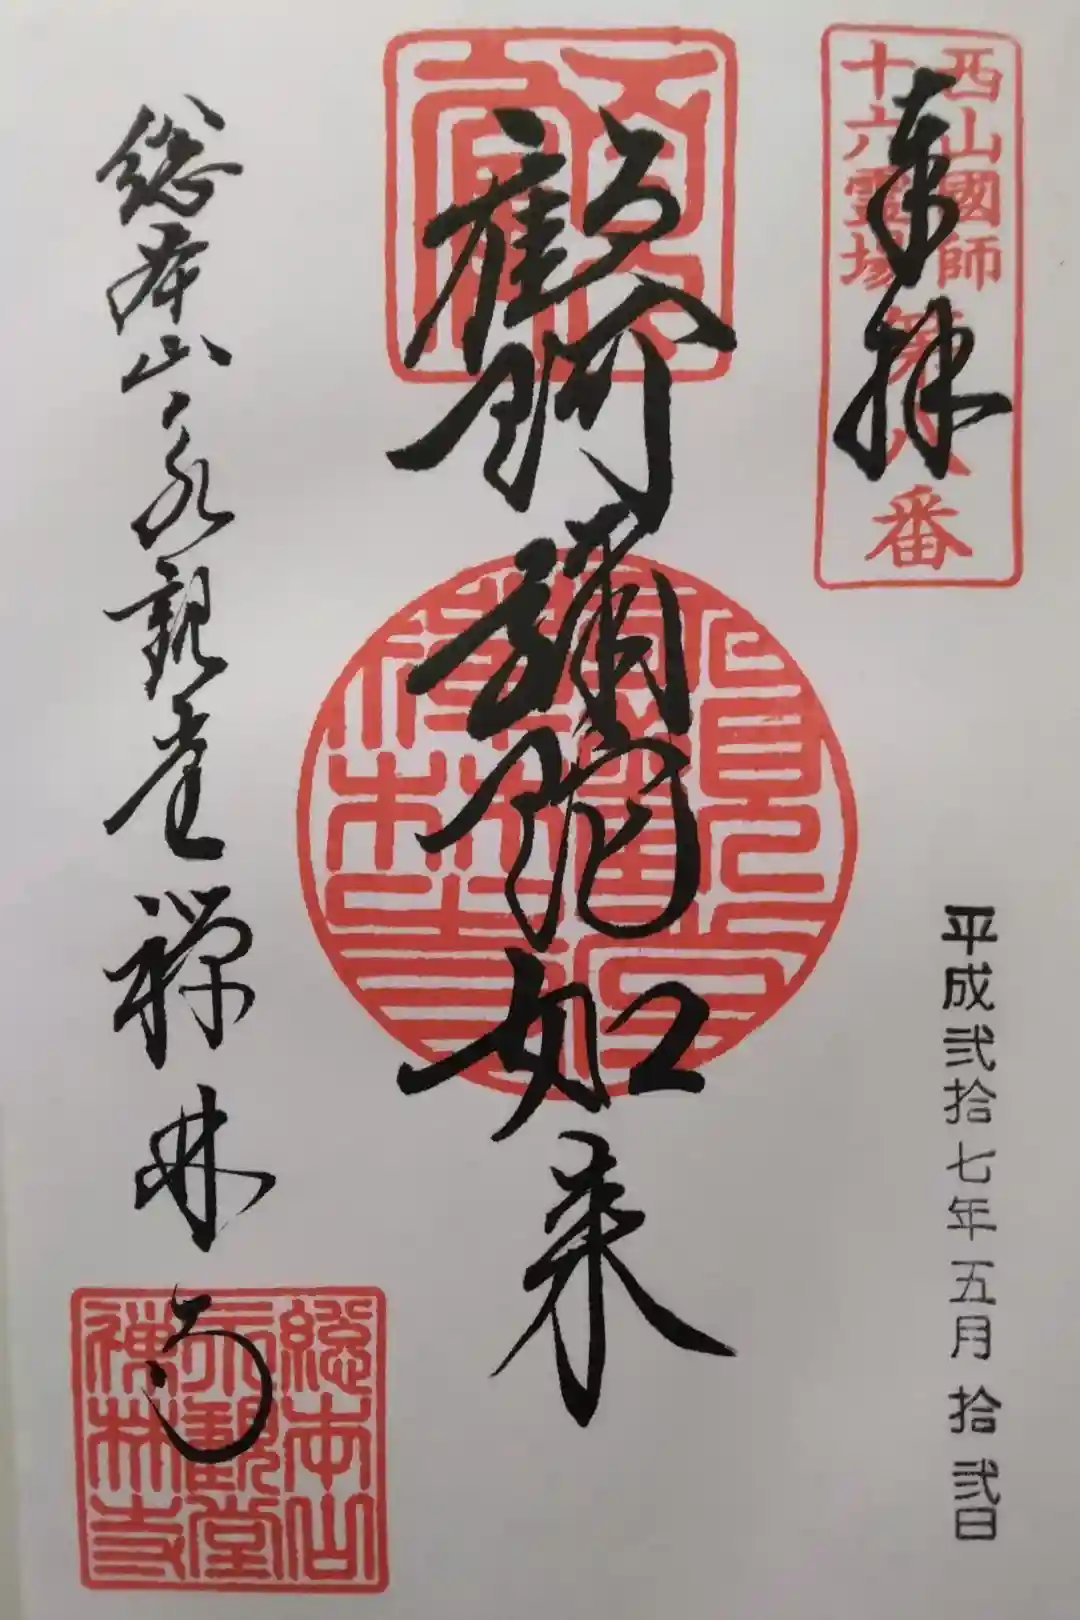 西山國師
十六霊場
第八番
奉拝
平成弐拾七年五月拾弐日
顧阿彌陀如来
総本山永観堂禅林寺
総本山
永観堂
禅林寺